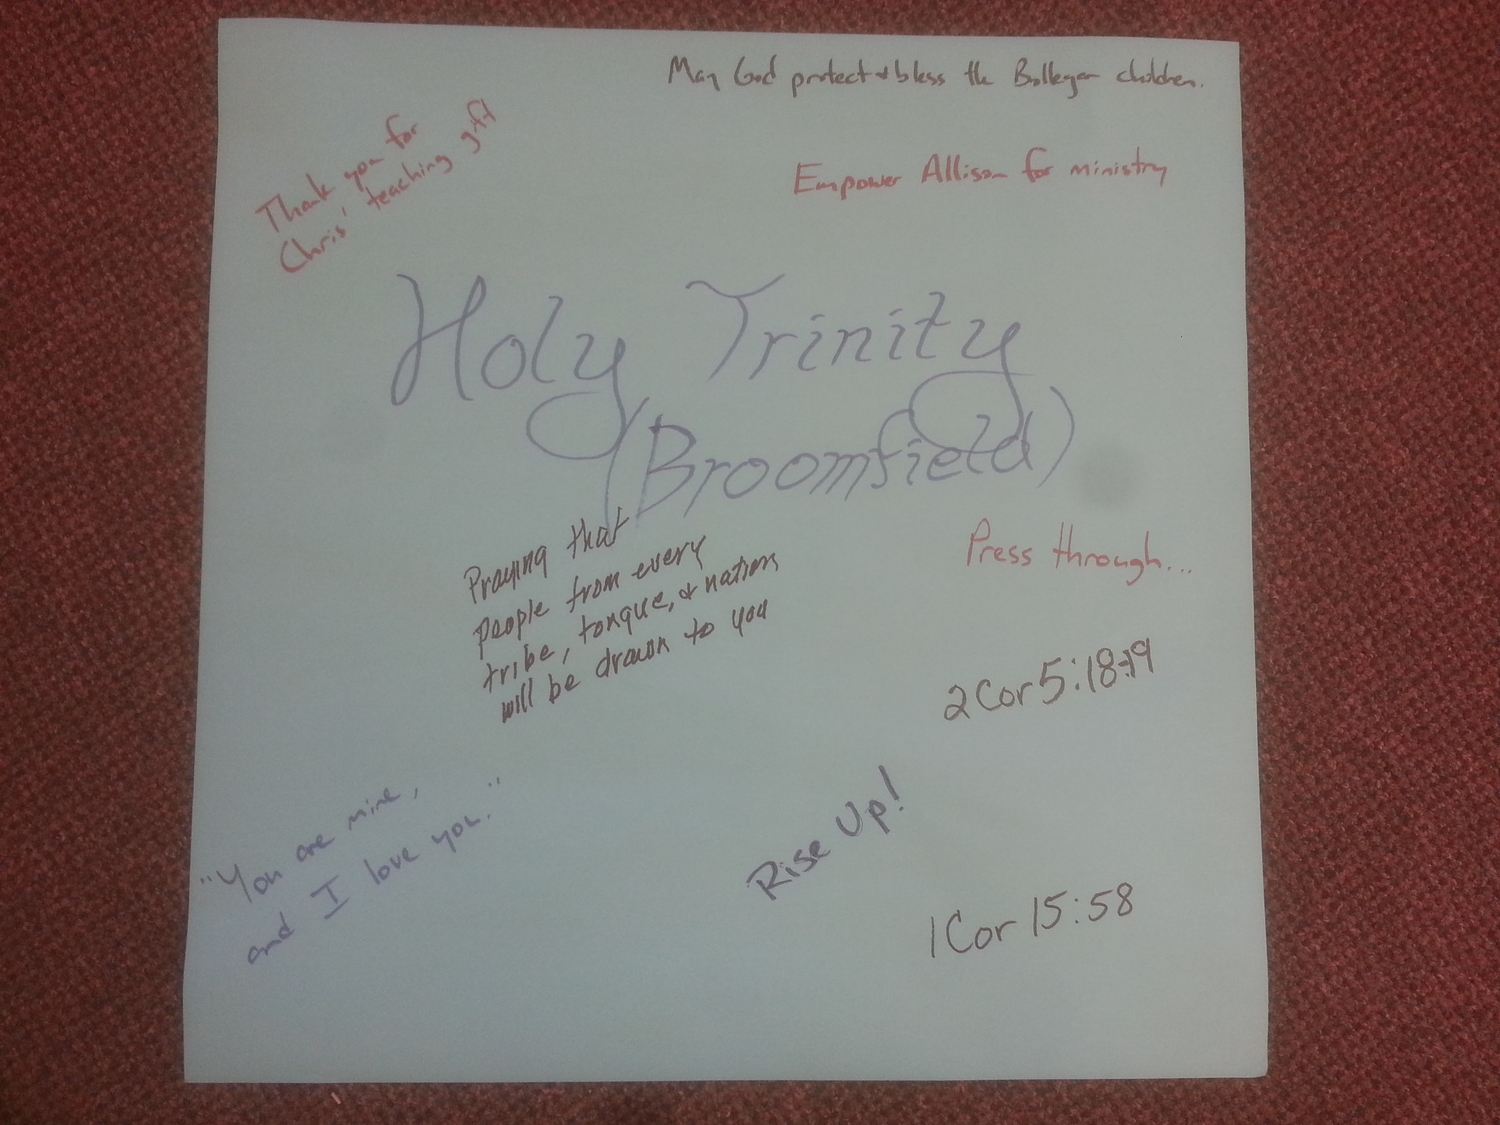 May God protect & bless the children.
Thank you for
Chris' teaching gift
Empower Allison for ministry
Holy Trinity
(Broomfield)
Praying that
people from every
tribe, tongue, & nation
will be drawn to you
Press through...
2 Cor 5:18-19
"You are mine,
and I love you."
Rise Up!
1 Cor 15:58